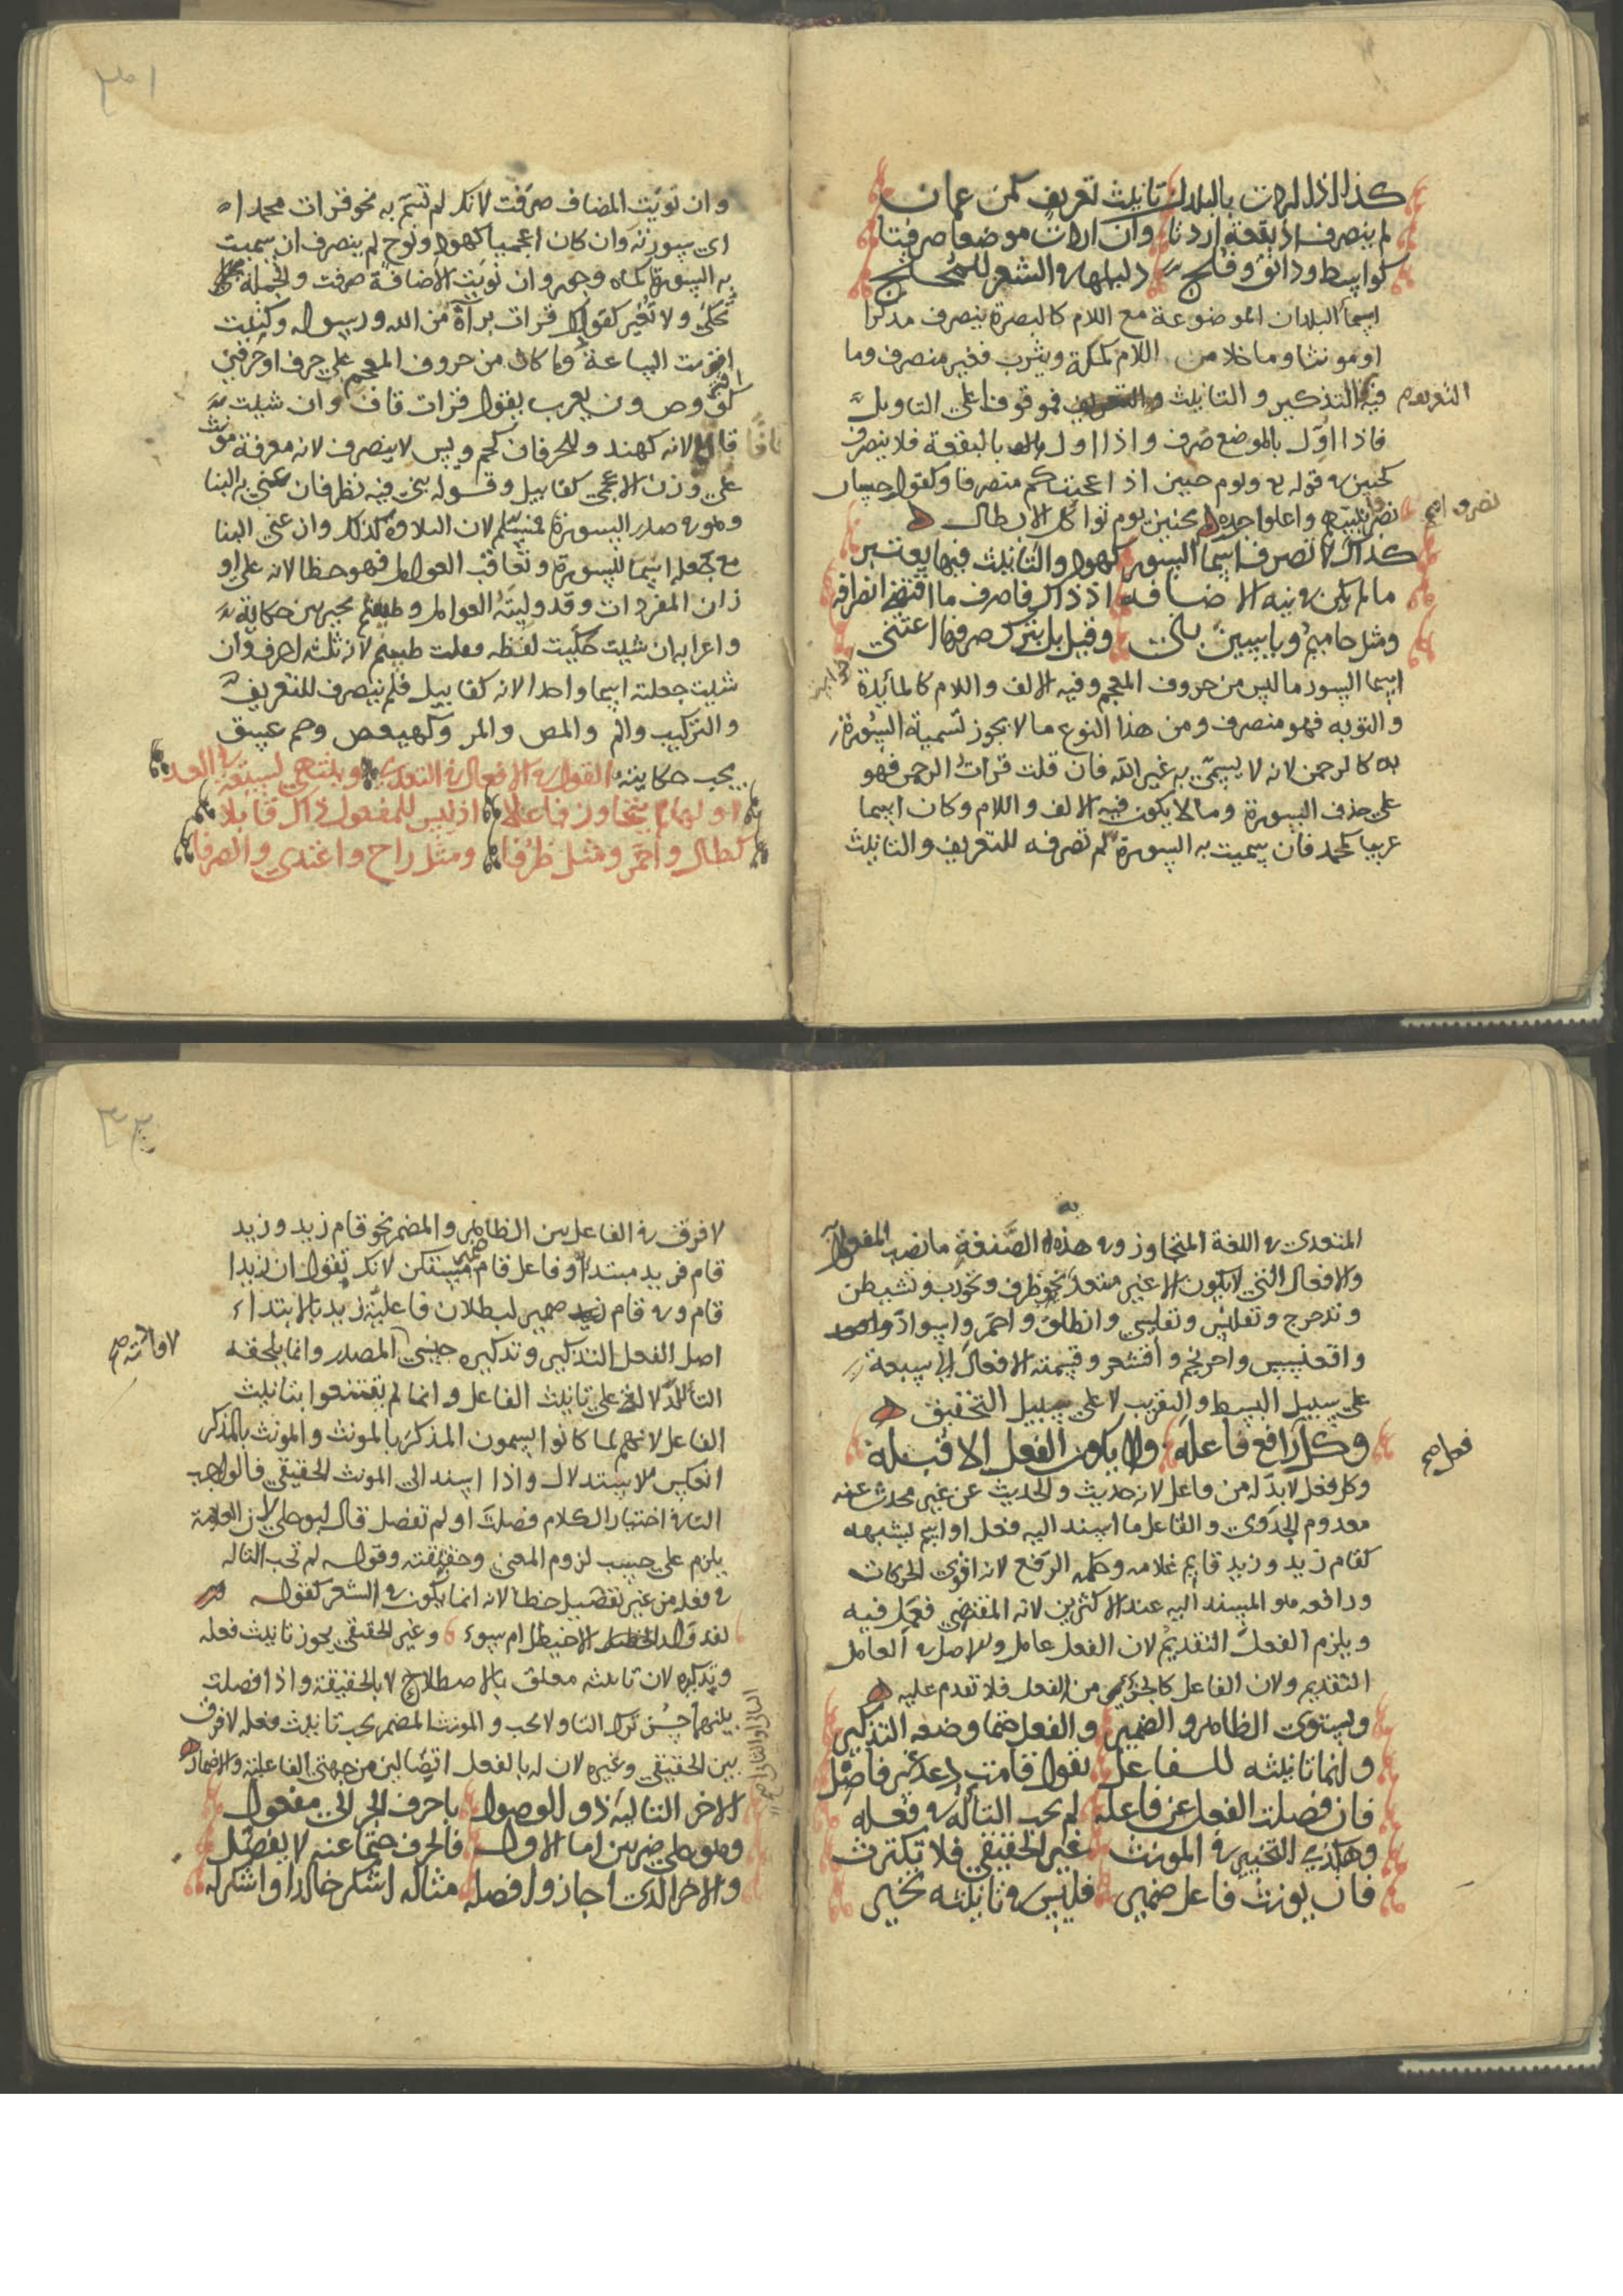 كذاك اذا اردت بالبلدان تانيث تعريف كمن عمان
لم ينصرف اذ بقعة اردتا وان اردت موضعا صرفتا
كواسط ودابق وفلج دليلها في الشعر للمحتج
اسماء البلدان الموضوعة مع اللام كالبصرة ينصرف مذكرا
او مونثا وما خلا من اللام كمكة ويثرب فغير منصرف وما
فيه التذكير والتانيث فموقوف على التاويل
فاذا اول بالموضع صرف واذا اول بالبقعة فلا ينصرف
كحنين في قوله تع ويوم حنين اذ اعجبتكم منصرفا وكقول حسان
نصروا نبيهم وشدوا بحنين يوم تواكل الابطال
كذاك لا تصرف اسماء السور كهود والتانيث فيها يعتبر
ما لم يكن في نية الاضافه اذ ذاك فاصرف ما اقتضى انصرافه
ومثل حاميم وياسين بني وقيل بل يترك صرفها اعتني
اسماء السور ما ليس من حروف المعجم وفيه الالف واللام كالمائدة
والتوبه فهو منصرف ومن هذا النوع ما لا يجوز تسمية السورة
به كالرحمن لانه لا يسمى به غير الله فان قلت قرات الرحمن فهو
على حذف السورة وما لا يكون فيه الالف واللام وكان اسما
عربيا كمحمد فان سميت به السورة لم تصرفه للتعريف والتانيث
وان نويت المضاف صرفت لانك لم تسم به نحو قرات محمدا
اي سورته وان كان اعجميا كهود ونوح لم ينصرف ان سميت
به السورة كماه وجور وان نويت الاضافة صرفت والجملة
تحكى ولا تغير كقولك قرات براءة من الله ورسوله وكتبت
اقتربت الساعة وما كان من حروف المعجم على حرف او حرفين
كق وص ون يعرب بقول قرات قاف وان شيت
قافا لانه كهند والحرفان كحم ويس لا ينصرف لانه معرفة مونث
على وزن الاعجمي كقابيل وقوله بني فيه نظر فان عنى به البنا
وهو في صدر السورة فمسلم لان التلاوة كذلك وان عنى البنا
مع جعله اسما للسورة وتعاقب العوامل فهو خطا لانه على او
زان المفردات وقد وليته العوامل وطسم يخير بين حكايته
واعرابه ان شيت حكيت لفظه فقلت طسم لانه ثلثة احرف وان
شيت جعلته اسما واحدا لانه كقابيل فلم ينصرف للتعريف
والتركيب والم والمص والمر وكهيعص وحم عسق
يجب حكايته القول في الافعال في التعدي وينتهي لسبعة في العد
اولها لم يتجاوز فاعلا اذ ليس للمفعول ذاك قابلا
كطال واحمر ومثل ظرفا ومثل راح واغتدي وانصرفا
المتعدي في اللغة المتجاوز وفي هذه الصنعة ما نصب المفعول به
والافعال التي لا يكون الا غير متعد نحو ظرف ونحو تشيطن
وتدحرج وانطلق واحمر واسواد
واقعنسس واحرنجم واقشعر وقسمته الافعال الى سبعة
على سبيل البسط والتقريب لا على سبيل التحقيق
وكل فعل رافع فاعله ولا يكون الفعل الا قبله
وكل فعل لا بد له من فاعل لانه حديث والحديث عن غير محدث عنه
معدوم الجدوى والفاعل ما اسند اليه فعل او اسم يشبهه
كقام زيد وزيد قايم غلامه وحكمه الرفع لانه اقوى الحركات
ورافعه هو المسند اليه عند الاكثرين لانه المقتضي فعمل فيه
ويلزم الفعل التقديم لان الفعل عامل والاصل في العامل
التقديم ولان الفاعل كالجزء من الفعل فلا تقدم عليه
ويستوي الظاهر والضمير والفعل حتما وضعه التذكير
وانما تانيثه للفاعل تقول قامت دعد غير فاصل
فان فصلت الفعل عن فاعله لم يجب التاء له في فعله
وهكذي التخيير في المونث غير الحقيقي فلا تكترث
فان يونث فاعل ضمير فليس في تانيثه تخيير
لا فرق في الفاعل بين الظاهر والمضمر نحو قام زيد وزيد
قام فزيد مبتدا وفاعل قام ضمير مستكن لانك تقول ان زيدا
قام وفي قام ضمير لبطلان فاعلية زيد بالابتداء
اصل الفعل التذكير وتذكيره جنس المصدر وانما يلحقه
التاء دلالة على تانيث الفاعل وانما لم يقتنعوا بتانيث
الفاعل لانهم لما كانوا يسمون المذكر بالمونث والمونث بالمذكر
انعكس الاستدلال واذا اسند الى المونث الحقيقي فالواجب
التاء في اختيار الكلام فصلت او لم تفصل قال ابو علي لان العلامة
يلزم على حسب لزوم المعنى وحقيقته وقوله لم تجب التا له
في فعله من غير تفصيل خطا لانه انما يكون في الشعر كقوله
لقد ولد الاخيطل ام سوء وغير الحقيقي يجوز تانيث فعله
وتذكيره لان تانيثه معلق بالاصطلاح لا بالحقيقة واذا فصلت
بينهما حسن ترك التا ولا يجب والمونث المضمر يجب تانيث فعله لا فرق
بين الحقيقي وغيره لان له بالفعل اتصالين من جهتي الفاعلية والاضمار
الاخر الثاني ذو الوصول باحرف الجر الى مفعول
وهو على ضربين اما الاول فالحرف حتما عنه لا يفصل
والاخر الذي اجازوا فصله مثاله اشكر خالدا واشكر له